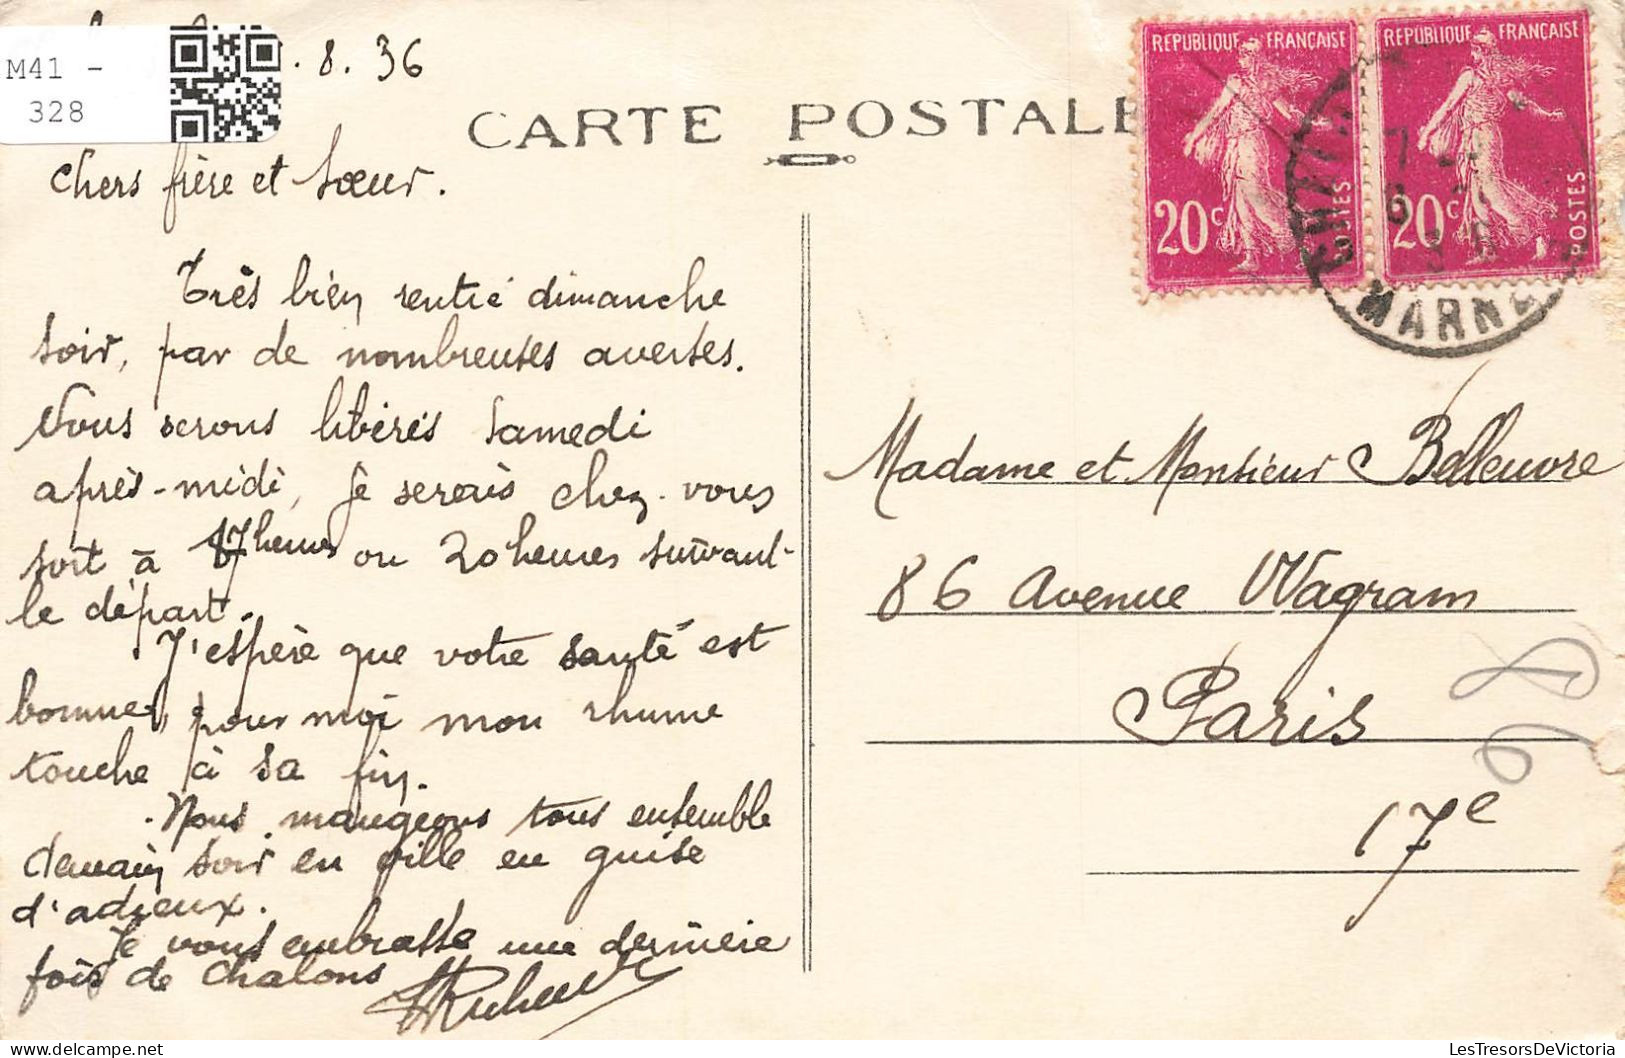 M41 -
328
. 8. 36
CARTE POSTALE
REPUBLIQUE FRANÇAISE
20c
POSTES
REPUBLIQUE FRANÇAISE
20c
POSTES
MARNE
chers frère et sœur.
Très bien rentré dimanche
soir, par de nombreuses averses.
Nous serons libérés samedi
après-midi, je serais chez vous
soit à 17 heures ou 20 heures suivant
le départ.
J'espère que votre santé est
bonne, pour moi mon rhume
touche à sa fin.
Nous mangeons tous ensemble
demain soir en ville en guise
d'adieux.
Je vous embrasse une dernière
fois de Chalons
Madame et Monsieur Belleuvre
86 Avenue Wagram
Paris
17e
LesTresorsDeVictoria